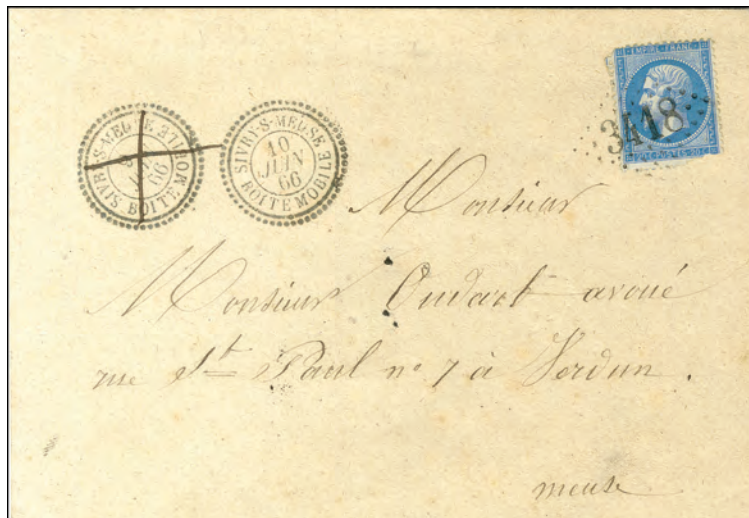 SIVRY-S-MEUSE
JUIN
66
BOITE MOBILE
SIVRY-S-MEUSE
10
JUIN
66
BOITE MOBILE
EMPIRE FRANC
3418
POSTES 20 C
Monsieur
Monsieur Oudart avoué
rue St Paul no 7 à Verdun.
meuse